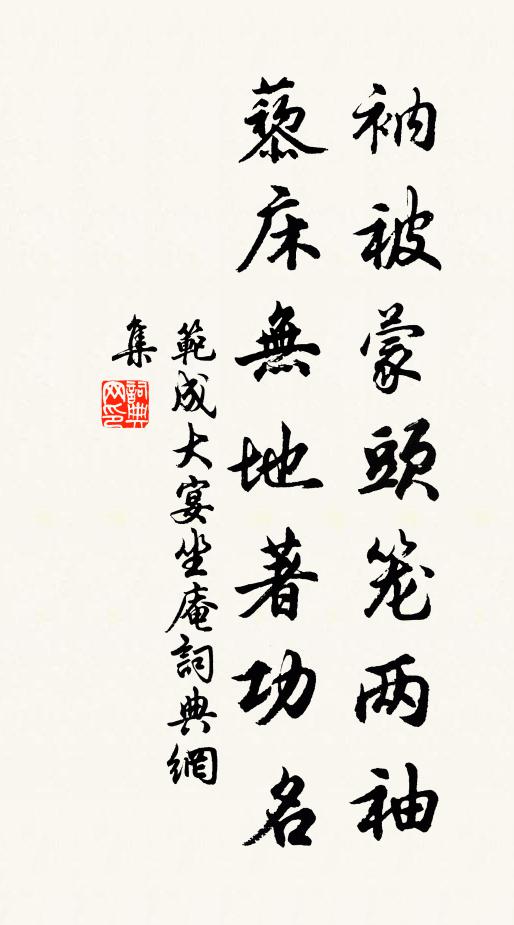 衲被蒙頭笼两袖
藜床無地著功名
範成大宴坐庵詞典網
集
詞典
网印